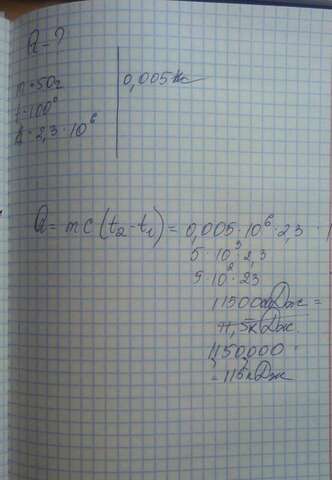 Q - ?
m = 50г
0,005 кг
t = 100°
2,3 · 10⁶
Q = mc (t₂ - t₁) = 0,005 · 10⁶ · 2,3 ·
5 · 10³ · 2,3
5 · 10² · 23
11500 Дж =
11,5кДж.
1150000
= 115кДж